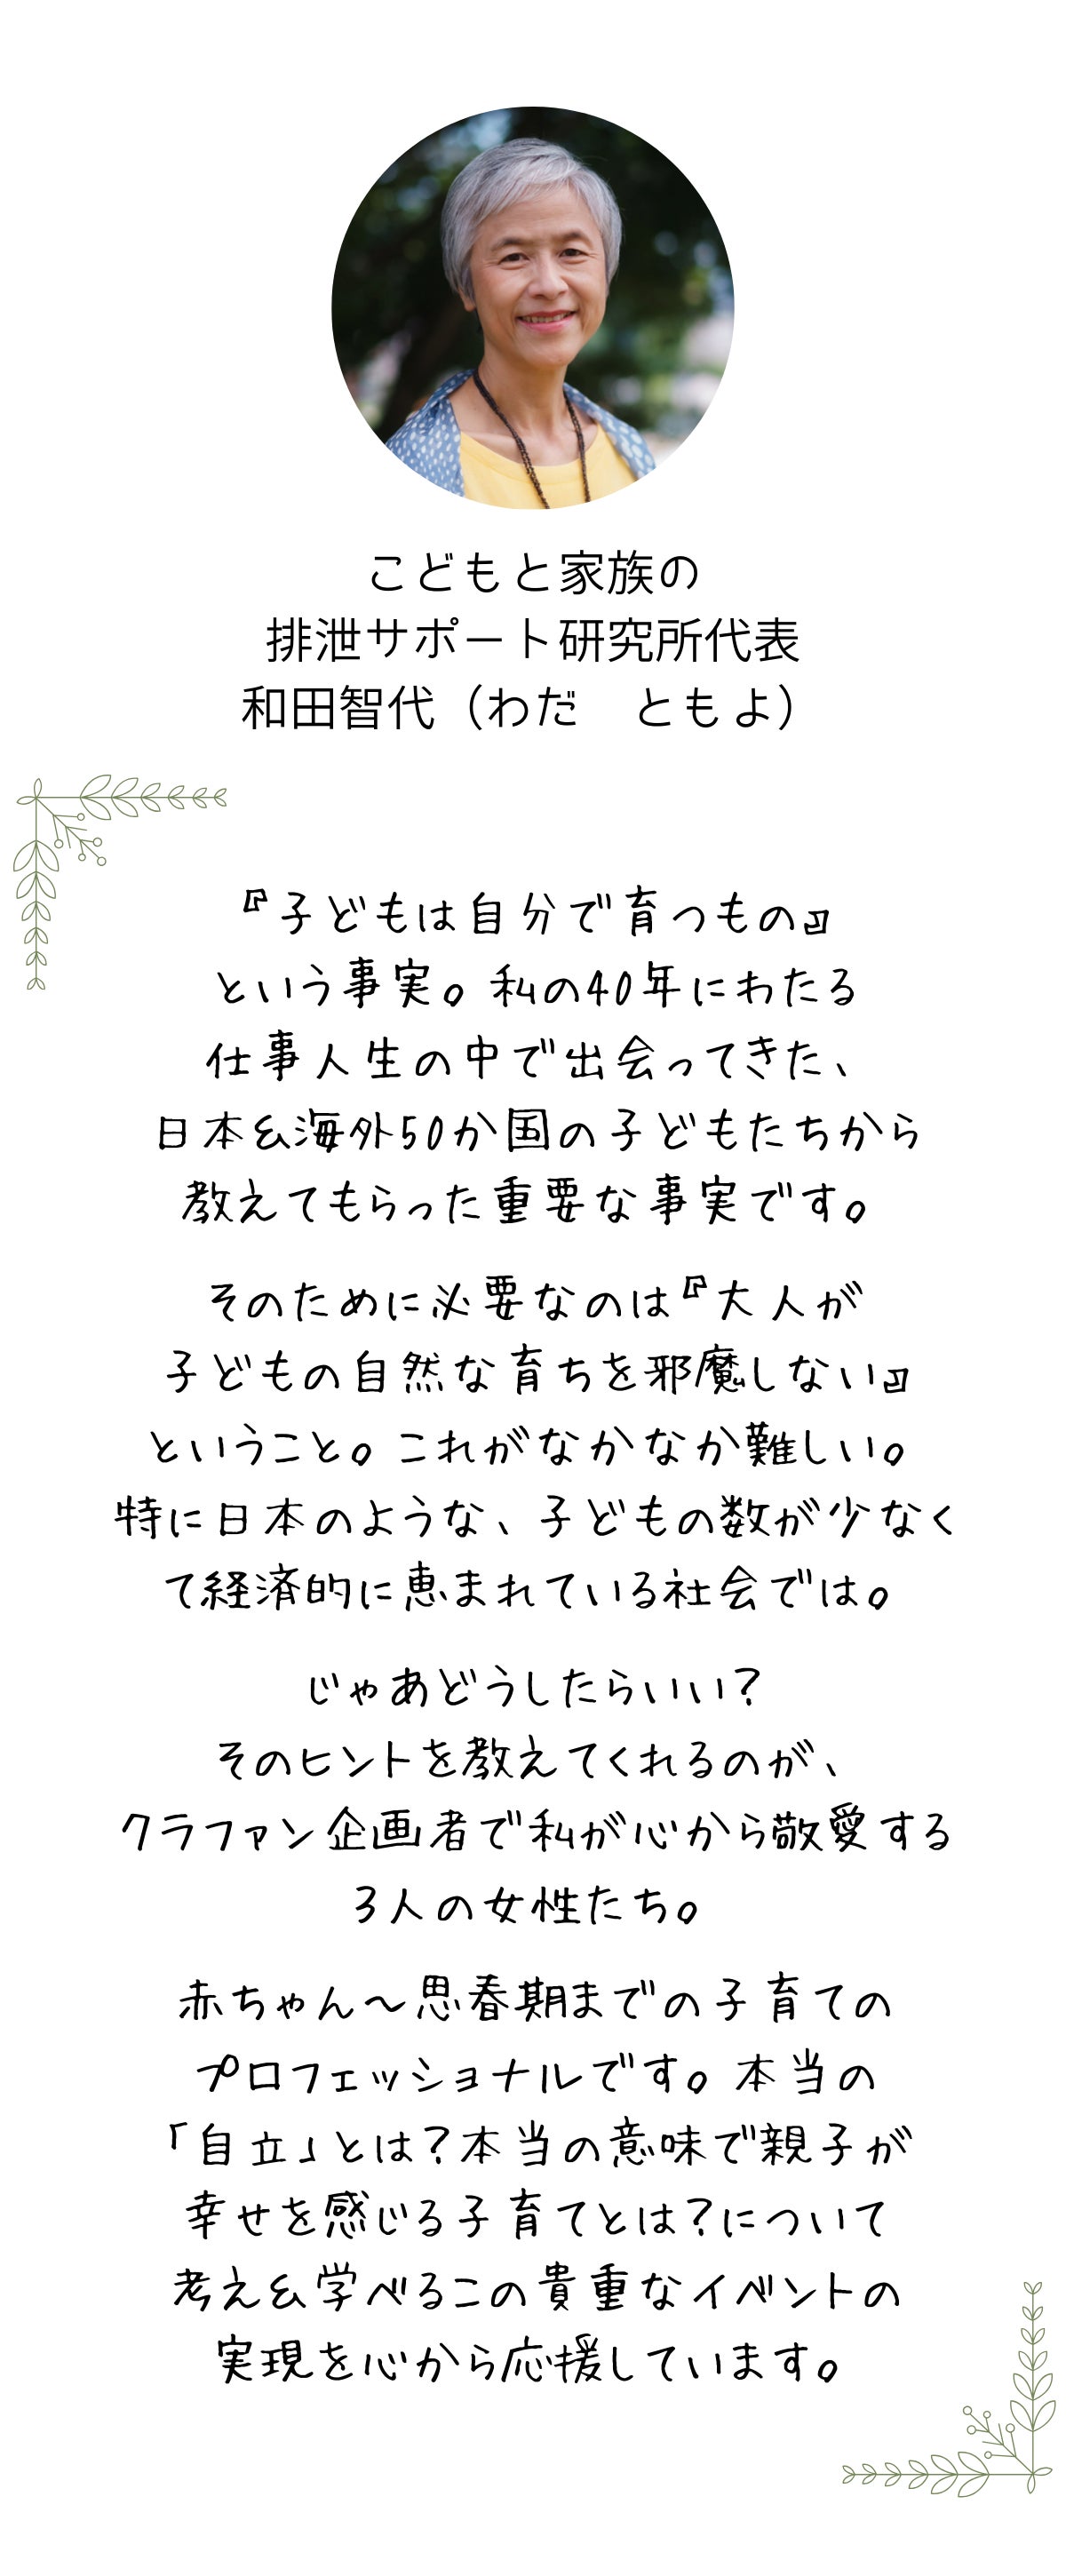 こどもと家族の
排泄サポート研究所代表
和田智代（わだ　ともよ）
『子どもは自分で育つもの』
という事実。私の40年にわたる
仕事人生の中で出会ってきた、
日本&海外50か国の子どもたちから
教えてもらった重要な事実です。
そのために必要なのは『大人が
子どもの自然な育ちを邪魔しない』
ということ。これがなかなか難しい。
特に日本のような、子どもの数が少なく
て経済的に恵まれている社会では。
じゃあどうしたらいい？
そのヒントを教えてくれるのが、
クラファン企画者で私が心から敬愛する
3人の女性たち。
赤ちゃん～思春期までの子育ての
プロフェッショナルです。本当の
「自立」とは？本当の意味で親子が
幸せを感じる子育てとは？について
考え&学べるこの貴重なイベントの
実現を心から応援しています。